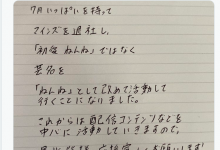 7月いっぱいを持って
マインズを退社し、
「新庄 ねんね」ではなく
芸名を
「ねんね」として改めて活動して
行くことになりました。
これからは配信コンテンツなどを
中心に活動していきますので、